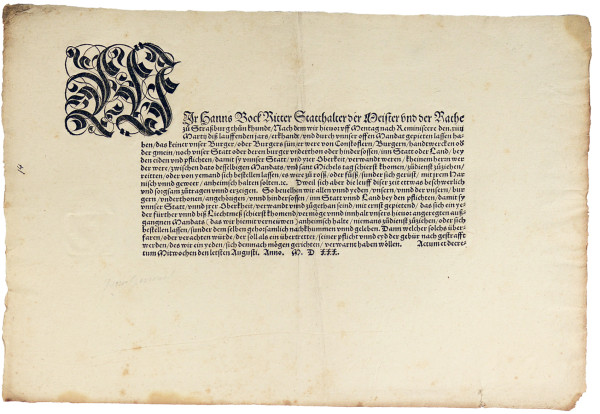 WJr Hanns Bock Ritter Statthalter der Meister vnd der Rathe
zů Straßburg thůn khunde / Nach dem wir hieuor vff Mentag nach Reminiscere den . xiiij
Martij diß lauffenden jars / erkhandt / vnd durch vnnser offen Mandat gepieten lassen ha-
ben / das keiner vnser Burger / oder Burgers sün / er were von Constoflern / Burgern / handtwercken od
der gmein / noch vnser Statt oder deren burger vnderthon oder hindersossen / inn Statt oder Land / bey
den eiden vnd pflichten / damit sy vnnser Statt / vnd vier Oberkeit / verwandt weren / kheinem herrn wer
der were / zwischen dato desselbigen Mandats / vnd sant Michels tag schierst khomen / zůdienst zůziehen /
reitten / oder von yemand sich bestellen lassen / es wäre zů roß / oder fůß / sunder sich gerüst / mit jrem Har
nisch vnnd gewer / anheimsch halten solten. ꝛc. Dweil sich aber die leuff diser zeit etwas beschwerlich
vnd sorgsam zůtragen vnnd erzeigen. So beuelhen wir allen vnnd yeden / vnsern / vnnd der vnsern / bur
gern / vnderthonen / angehörigen / vnnd hindersossen / inn Statt vnnd Land bey den pflichten / damit sy
vnnser Statt / vnnd jrer Oberkeit / verwandt vnnd zůgethan seind / mit ernst gepietend / das sich ein ye
der fürther vnnd biß Liechtmeß schierst khomend / vermöge vnnd innhalt vnsers hieuor angeregten auß-
gangnen Mandats / das wir hiemit vernewen / anheimsch halte / niemans zůdienst zůziehen / oder sich
bestellen lassen / sunder dem selben gehorsamlich nachkhummen vnnd geleben. Dann welcher solchs über-
faren / oder verachten würde / der soll als ein übertretter / seiner pflicht vnnd eyd der gebür nach gestrafft
werden / des wir ein yeden / sich demnach mögen gerichten / verwarnt haben wöllen. Actum et decre-
tum Mitwochen den letsten Augusti. Anno. M. D XXX.